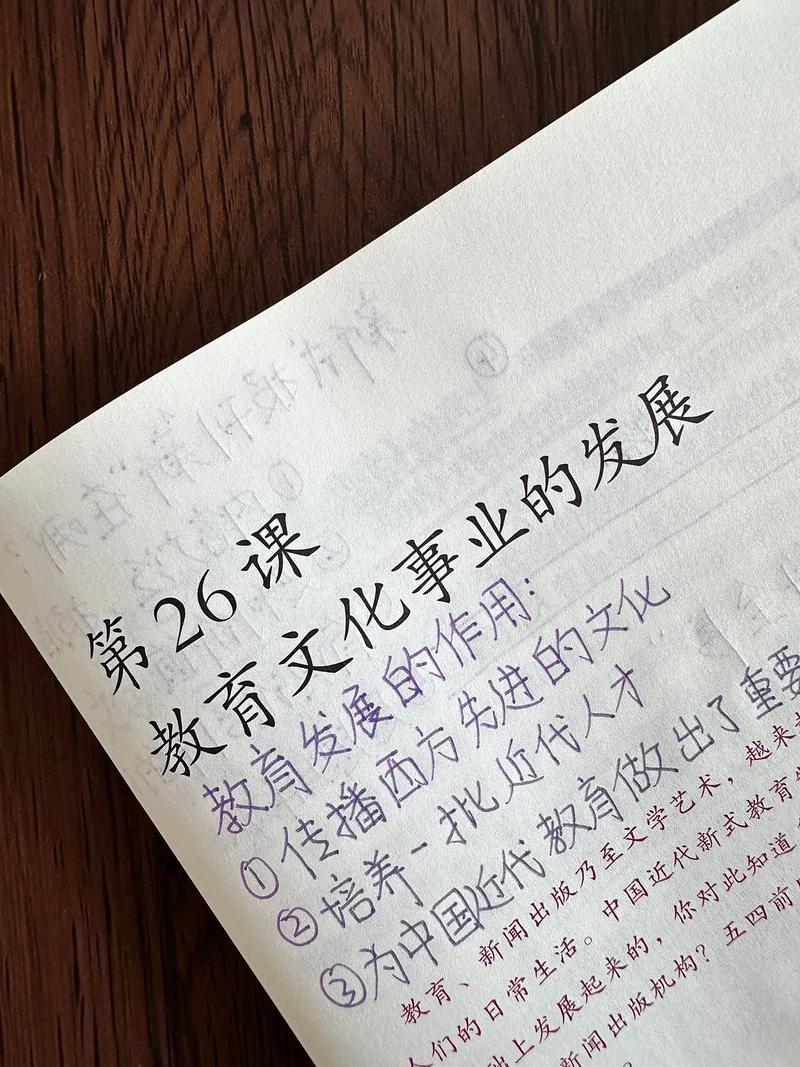 第26课
教育文化事业的发展
教育发展的作用:
①传播西方先进的文化
②培养一批近代人才
③为中国近代教育做出了重要
教育、新闻出版乃至文学艺术，越来越
人们的日常生活。中国近代新式教育
础上发展起来的，你对此知道
新闻出版机构？五四前